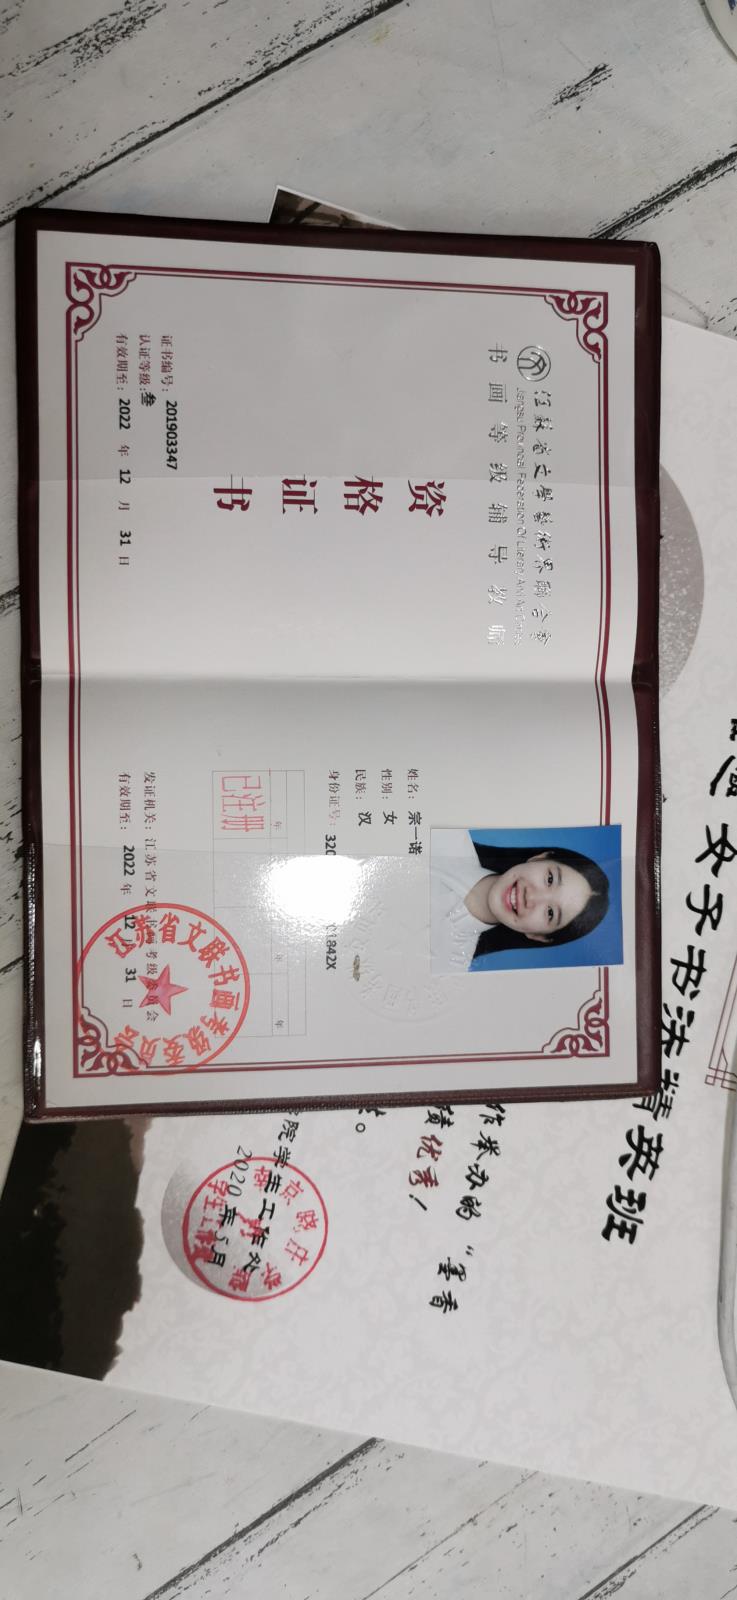 江蘇省文學藝術界聯合會
Jiangsu Provincial Federation Of Literary And Art Circles
书画等级辅导教师
资格证书
证书编号：201903347
认证等级：叁
有效期至：2022 年 12 月 31 日
姓名：宗一诺
性别：女
民族：汉
身份证号：320 1842X
年 年 年
已注册
发证机关：江苏省文联书画考级委员会
有效期至：2022 年 12 月 31 日
江苏省文联书画考级委员会
女子书法精英班
作举办的“墨香
绩优秀！
院学生工作处
2020年5月